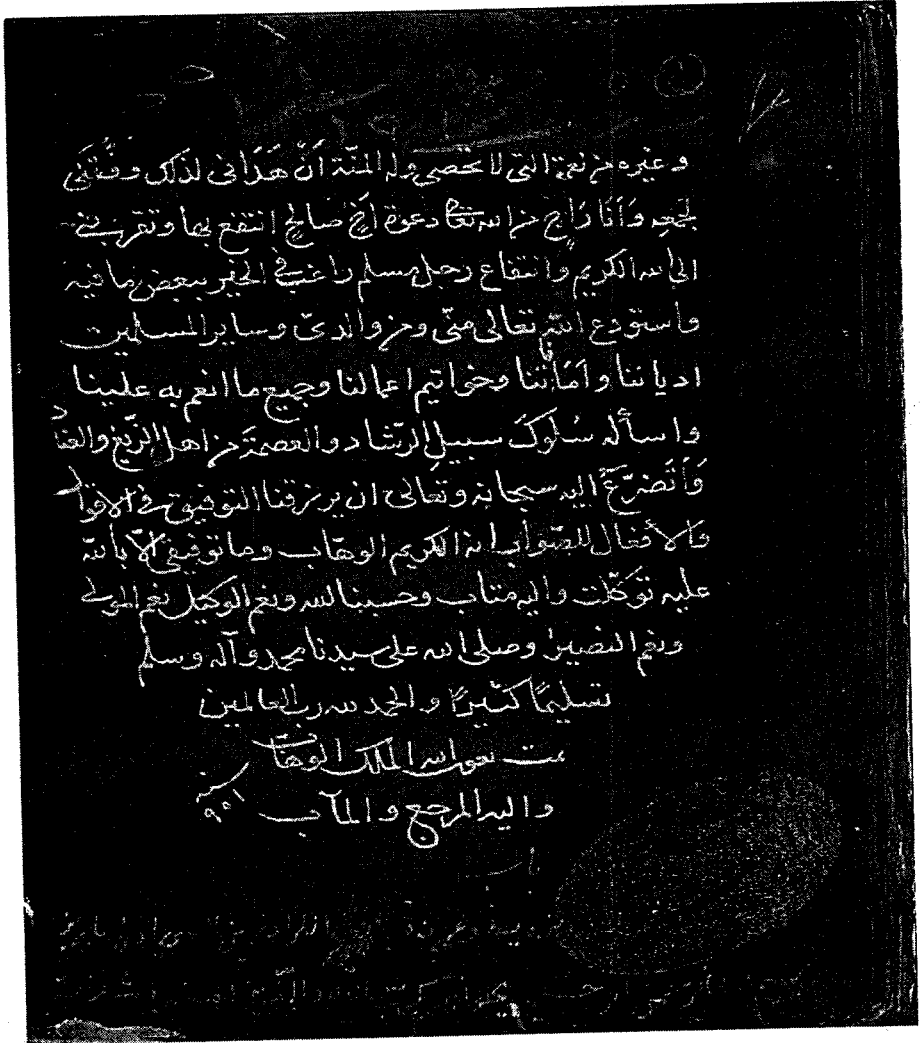 وغيره من نعمه التى لا تحصى وله المنّة أَنْ هَدَانى لذلك ووفّقنى
لجمعِه وَأَنَا رَاجٍ من الله تعالى دعوة أَخٍ صالحٍ انتفع بها وتقربنى
الى الله الكريم وانتفاع رجل مسلم راغب فى الخير ببعض ما فيه
واستودع اللّه تعالى منّى ومن والدىّ وساير المسلمين
اديا ننا وأَمَانٰتنا وخواتيم اعمالنا وجميع ما انعم به علينا
واسأله سُلُوكَ سبيل الرّشاد والعصمَةَ من اهل الزّيغ والعناد
وَأَتَضرّعُ اليه سبحانه وتعالى ان يرزقنا التوفيق فى الاقوال
والأفعال للصّواب انه الكريم الوهّاب وما توفيقى الّا بالله
عليه توكّلت واليه متاب وحسبنا الله ونعم الوكيل نعم المولى
ونعم النصير وصلى الله على سيدنا محمد وآله وسلم
تسليمًا كثيرًا والحمد لله رب العالمين
تمت بعون الله الملك الوهاب
واليه المرجع والمآب سنة ٩٩١